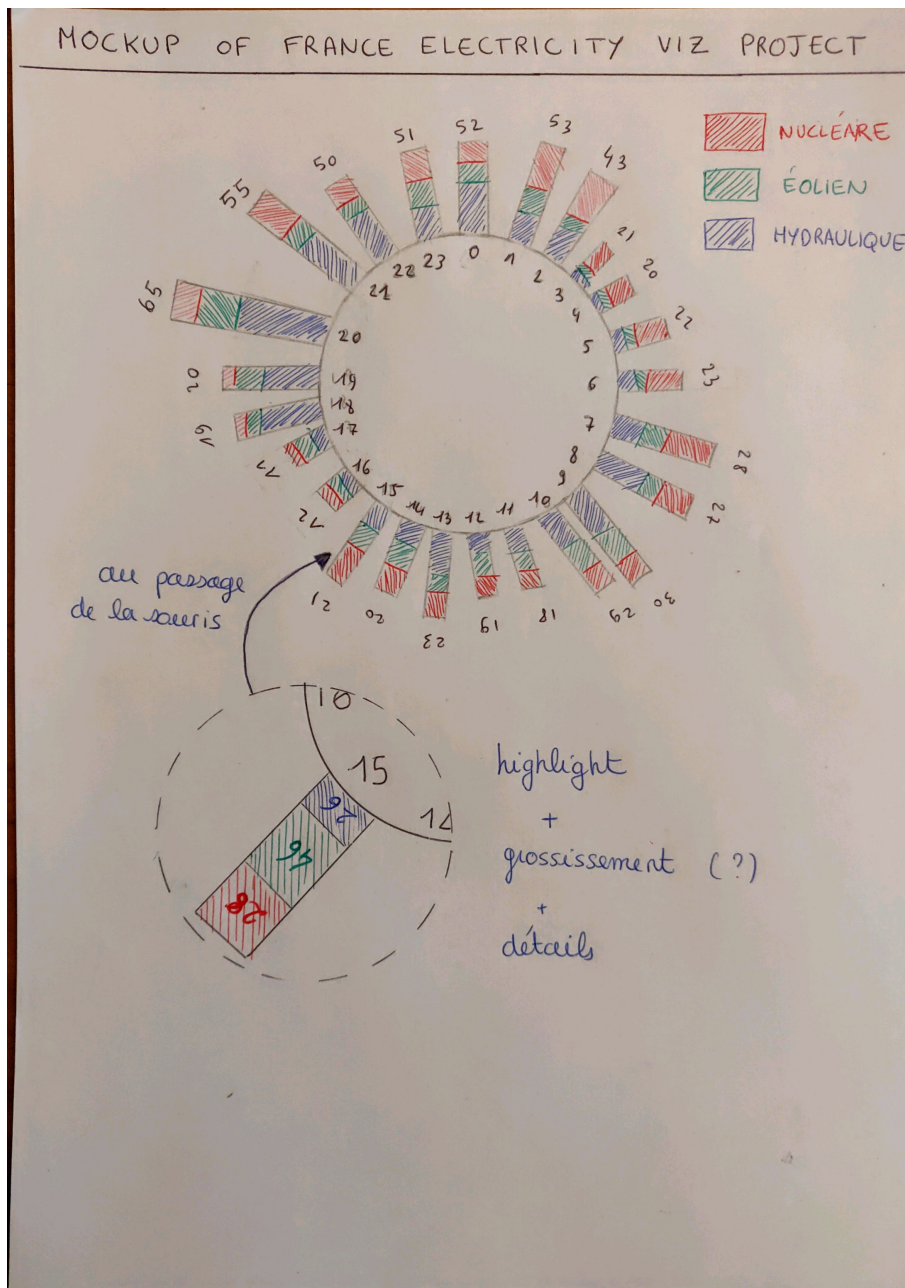 MOCKUP OF FRANCE ELECTRICITY VIZ PROJECT
NUCLÉAIRE
ÉOLIEN
HYDRAULIQUE
52
53
43
21
20
22
23
28
27
30
29
18
19
23
20
21
12
11
19
20
65
55
50
51
0
1
2
3
4
5
6
7
8
9
10
11
12
13
14
15
16
17
18
19
20
21
22
23
au passage
de la souris
15
26
46
28
highlight
+
grossissement (?)
+
détails